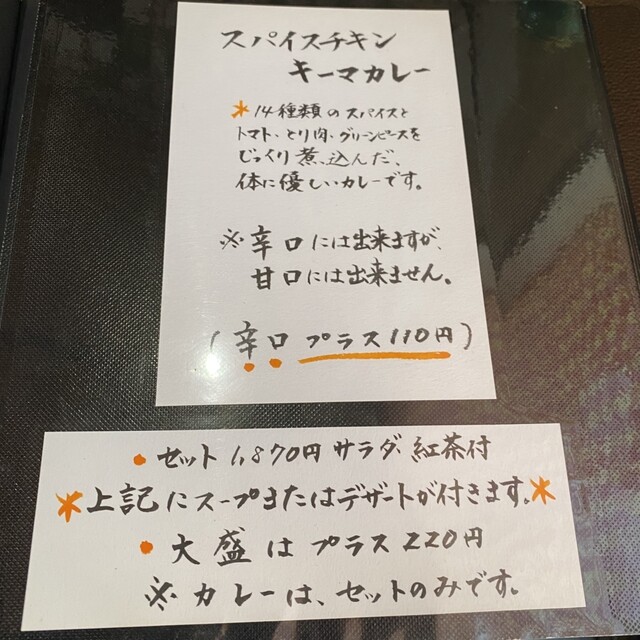 スパイスチキン
キーマカレー
*14種類のスパイスと
トマト・とり肉・グリーンピースを
じっくり煮込んだ、
体に優しいカレーです。
※辛口には出来ますが、
甘口には出来ません。
(辛口プラス110円)
• セット1,870円サラダ、紅茶付
*上記にスープまたはデザートが付きます。*
• 大盛はプラス220円
※カレーは、セットのみです。